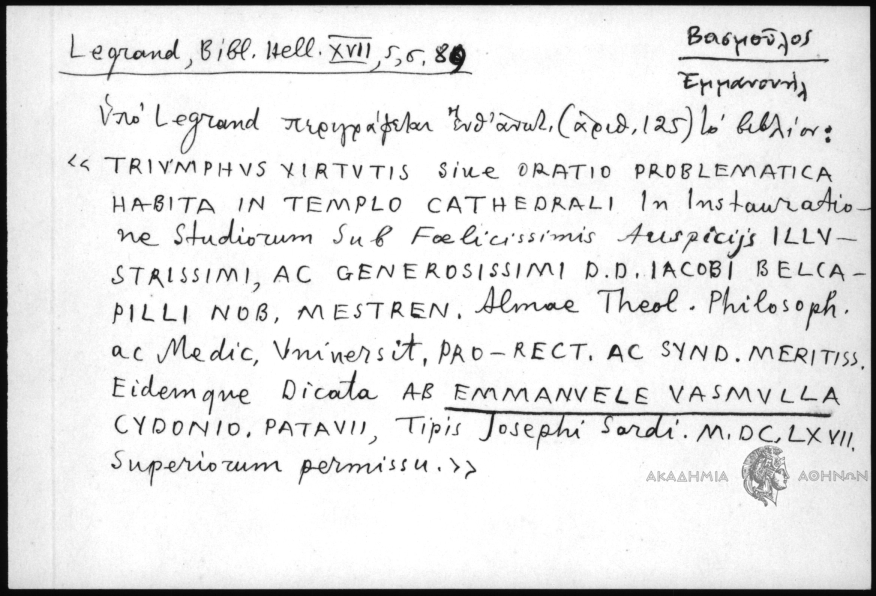 Legrand, Bibl. Hell. XVII, 5, σ. 89
Βασμοῦλος
Ἐμμανουήλ
Ὑπό Legrand περιγράφεται ἔνθ' ἀνωτ. (ἀριθ. 125) τό βιβλίον:
«TRIVMPHVS VIRTVTIS Siue ORATIO PROBLEMATICA
HABITA IN TEMPLO CATHEDRALI In Instauratio-
ne Studiorum Sub Fœlicissimis Auspicijs ILLV-
STRISSIMI, AC GENEROSISSIMI D.D. IACOBI BELCA-
PILLI NOB. MESTREN. Almae Theol. Philosoph.
ac Medic, Vniversit, PRO-RECT. AC SYND. MERITISS.
Eidemque Dicata AB EMMANVELE VASMVLLA
CYDONIO. PATAVII, Tipis Josephi Sardi. M.DC.LXVII.
Superiorum permissu.»
ΑΚΑΔΗΜΙΑ ΑΘΗΝΩΝ